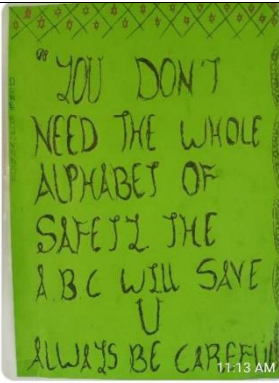 "YOU DON'T
NEED THE WHOLE
ALPHABET OF
SAFETY. THE
A.B.C WILL SAVE
U
ALWAYS BE CAREFUL
11:13 AM